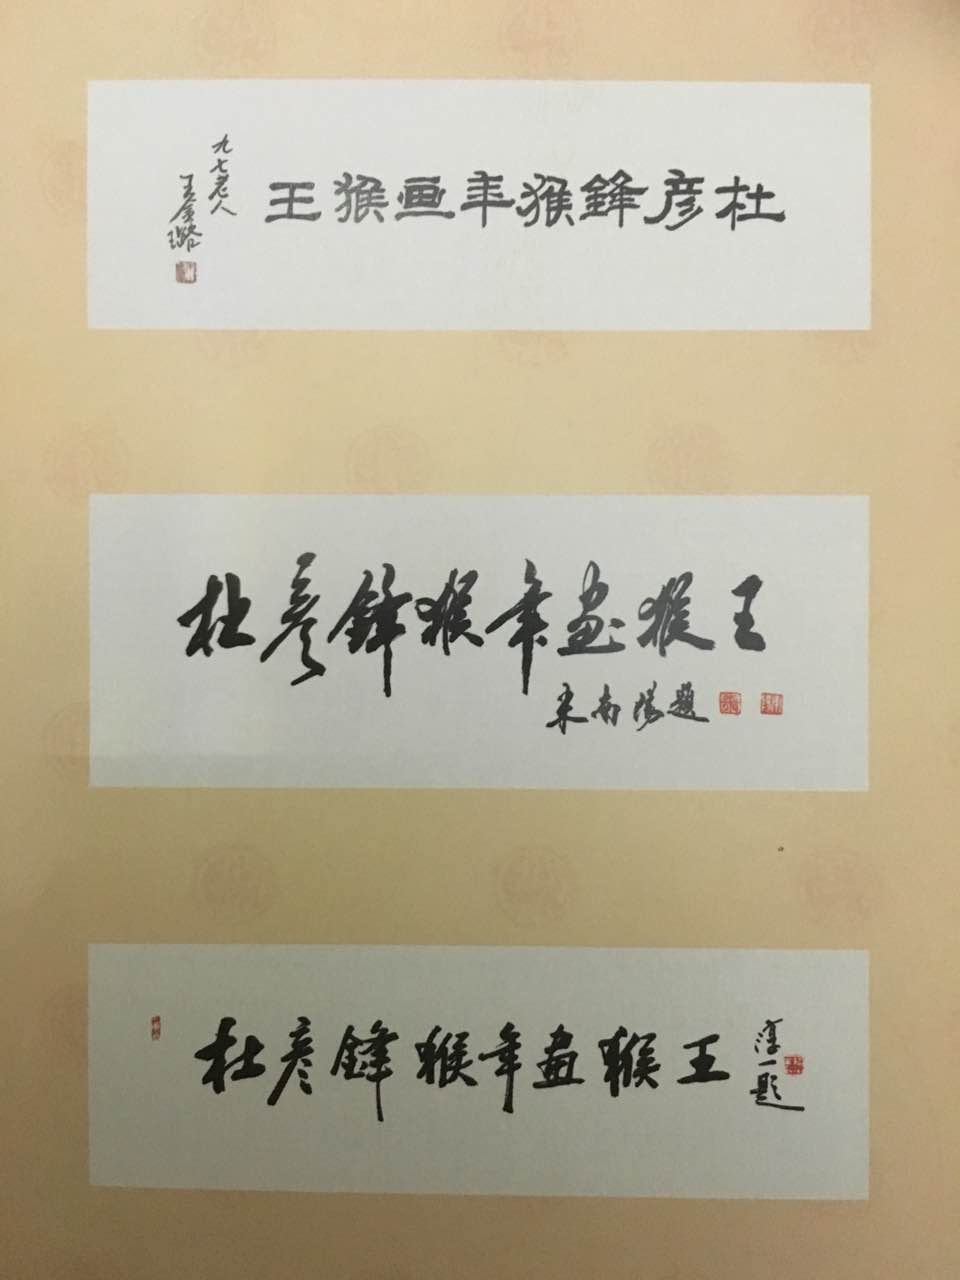 杜彦鋒猴年画猴王
九七老人
王金璐
杜彦鋒猴年畫猴王
米南陽題
杜彦鋒猴年畫猴王
淳一題